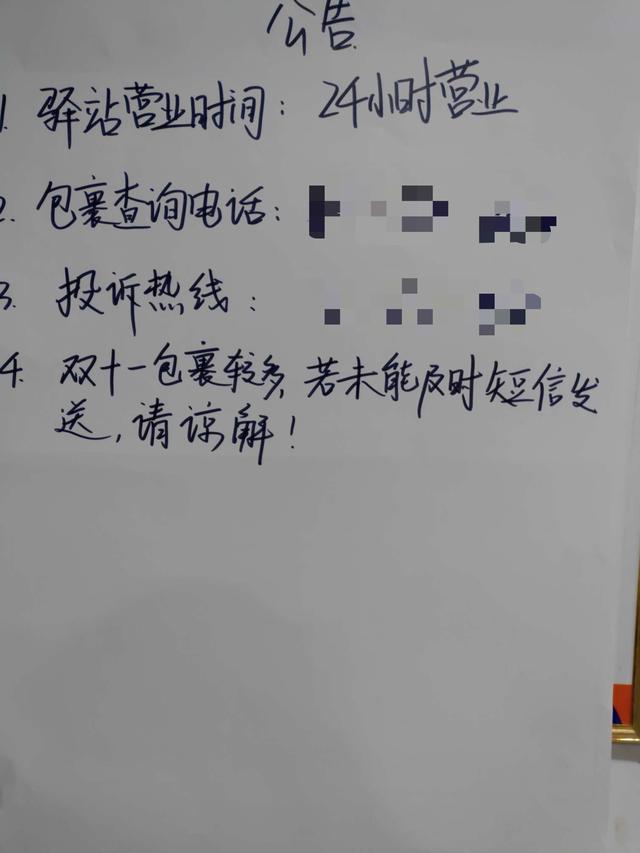 公告
1. 驿站营业时间：24小时营业
2. 包裹查询电话：
3. 投诉热线：
4. 双十一包裹较多，若未能及时短信发
送，请谅解！